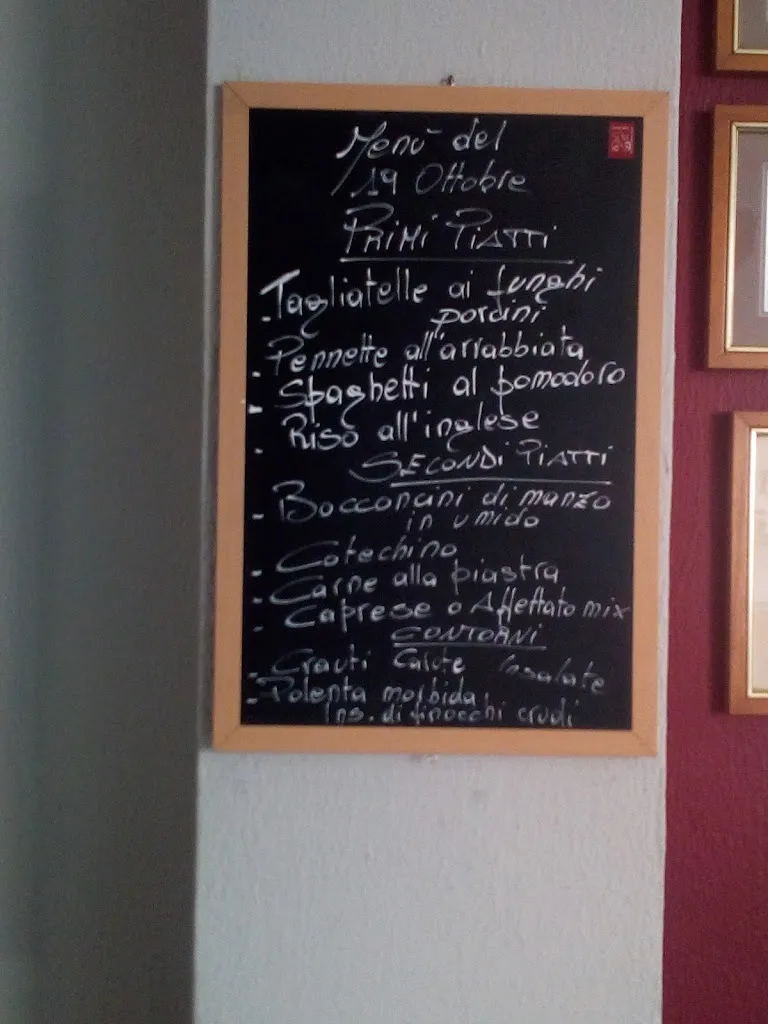 Menù del
19 Ottobre
PRIMI PIATTI
- Tagliatelle ai funghi
porcini
- Pennette all'arrabbiata
- Spaghetti al pomodoro
- Riso all'inglese
SECONDI PIATTI
- Bocconcini di manzo
in umido
- Cotechino
- Carne alla piastra
- Caprese o Affettato mix
CONTORNI
- Crauti Carote Insalate
- Polenta morbida
Ins. di finocchi crudi